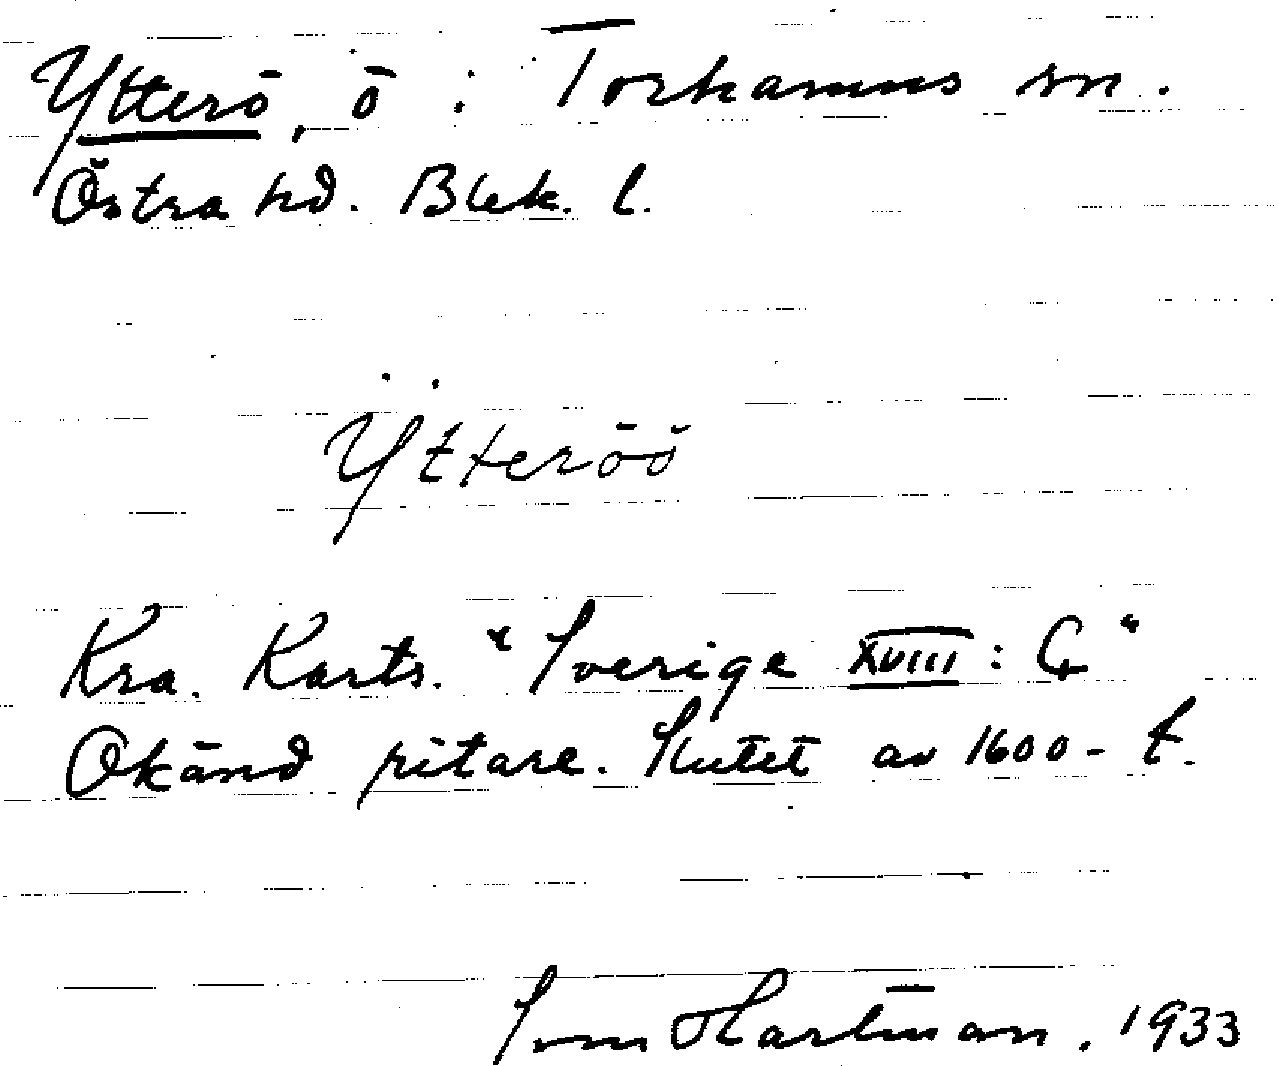 Ytterö, ö : Torhamns sn.
Östra hd. Blek. l.
Ÿtteröö
Kra. Karts. "Sverige XVIII : G"
Okänd ritare. Slutet av 1600-t.
Sven Hartman. 1933